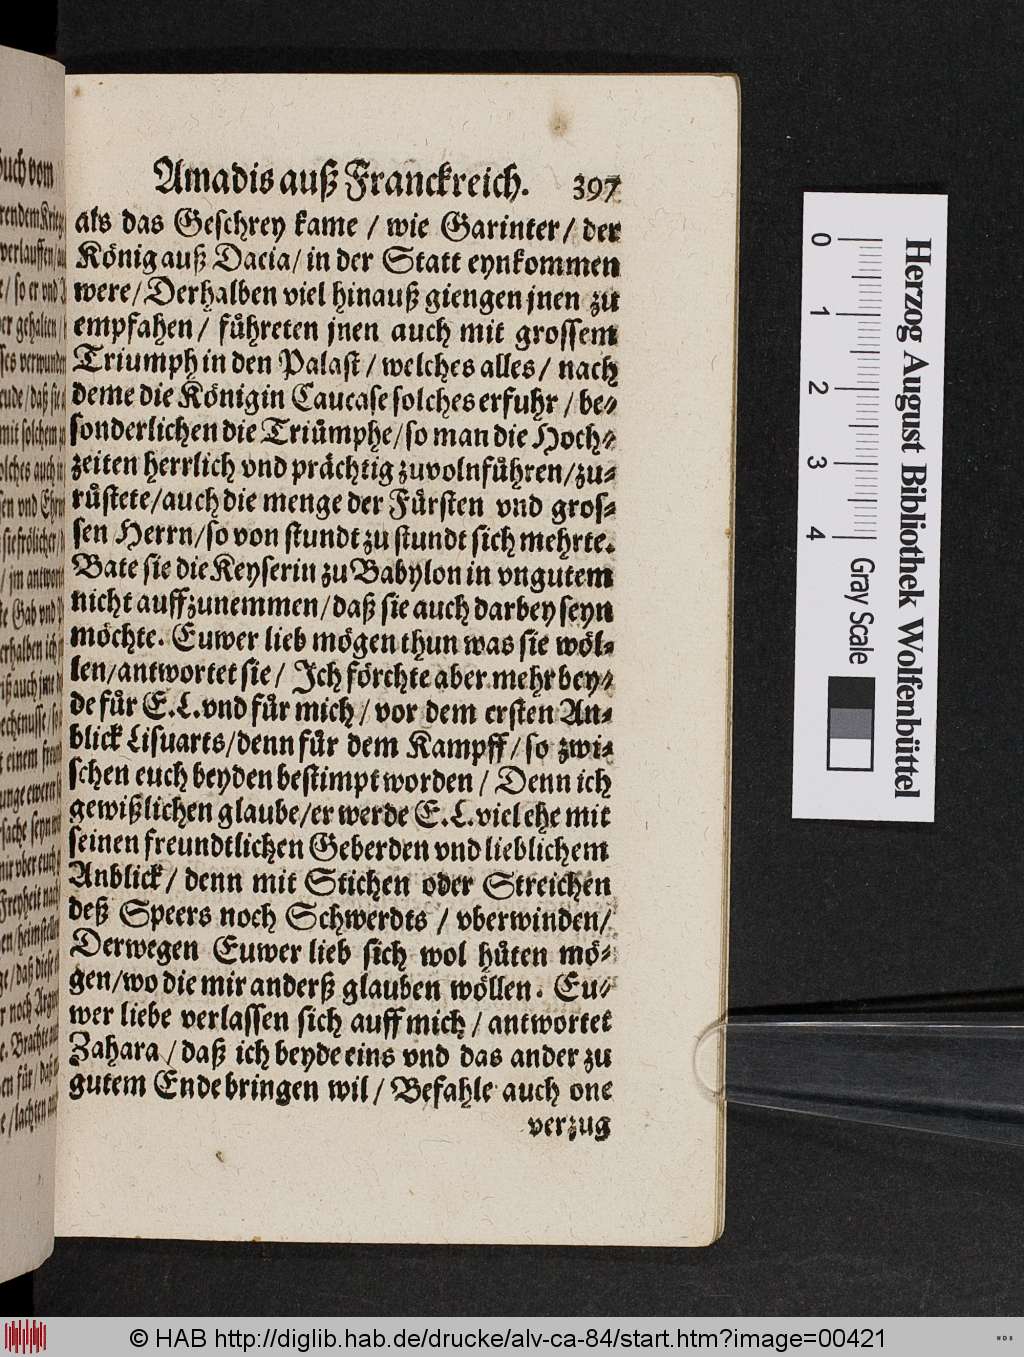 Amadis auß Franckreich. 397
als das Geschrey kame / wie Garinter / der
König auß Dacia / in der Statt eynkommen
were / Derhalben viel hinauß giengen jnen zu
empfahen / fuͤhreten jnen auch mit grossem
Triumph in den Palast / welches alles / nach
deme die Koͤnigin Caucase solches erfuhr / be-
sonderlichen die Triuͤmphe / so man die Hoch-
zeiten herrlich vnd praͤchtig zuvolnfuͤhren / zu-
ruͤstete / auch die menge der Fuͤrsten vnd gros-
sen Herrn / so von stundt zu stundt sich mehrte.
Bate sie die Keyserin zu Babylon in vngutem
nicht auffzunemmen / daß sie auch darbey seyn
moͤchte. Euwer lieb moͤgen thun was sie woͤl-
len / antwortet sie / Ich foͤrchte aber mehr bey-
de fuͤr E. L. vnd fuͤr mich / vor dem ersten An-
blick Lisuarts / denn fuͤr dem Kampff / so zwi-
schen euch beyden bestimpt worden / Denn ich
gewißlichen glaube / er werde E. L. viel ehe mit
seinen freundtlichen Geberden vnd lieblichem
Anblick / denn mit Stichen oder Streichen
deß Speers noch Schwerdts / vberwinden /
Derwegen Euwer lieb sich wol huͤten moͤ-
gen / wo die mir anderß glauben woͤllen. Eu-
wer liebe verlassen sich auff mich / antwortet
Zahara / daß ich beyde eins vnd das ander zu
gutem Ende bringen wil / Befahle auch one
verzug
Herzog August Bibliothek Wolfenbüttel
0 1 2 3 4 Gray Scale
© HAB http://diglib.hab.de/drucke/alv-ca-84/start.htm?image=00421